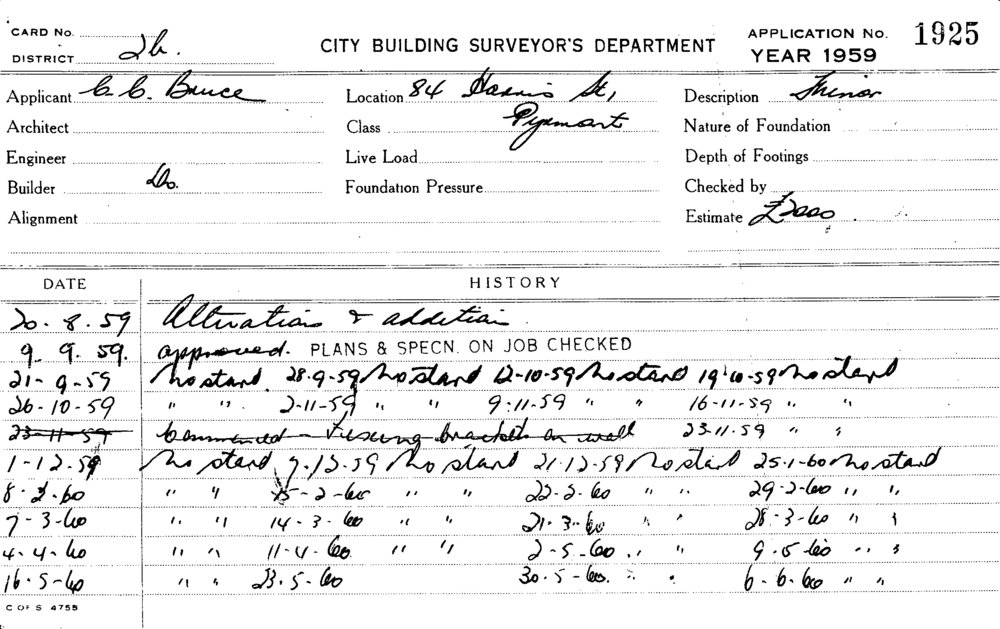 CARD NO.
DISTRICT 2b.
CITY BUILDING SURVEYOR'S DEPARTMENT
APPLICATION NO. 1925
YEAR 1959
Applicant C. C. Bruce
Location 84 Harris St,
Description Minor
Architect
Class Pyrmont
Nature of Foundation
Engineer
Live Load
Depth of Footings
Builder Do.
Foundation Pressure
Checked by
Alignment
Estimate
DATE HISTORY
20. 8. 59 Alteration & addition
9. 9. 59. approved. PLANS & SPECN. ON JOB CHECKED
21-9-59 No start 28-9-59 No start 12-10-59 No start 19-10-59 No start
26-10-59 " " 2-11-59 " " 9.11.59 " " 16-11-59 " "
23-11-59 Commenced - Fixing brackets on wall 23.11.59 " "
1-12-59 No start 7-12-59 No start 21-12-59 No start 25-1-60 No start
8-2-60 " " 15-2-60 " " 22-2-60 " " 29-2-60 " "
7-3-60 " " 14-3-60 " " 21-3-60 " " 28-3-60 " "
4-4-60 " " 11-4-60 " " 2-5-60 " " 9.5.60 " "
16-5-60 " " 23.5-60 30.5-60. " " 6-6.60 " "
C OF S 4755